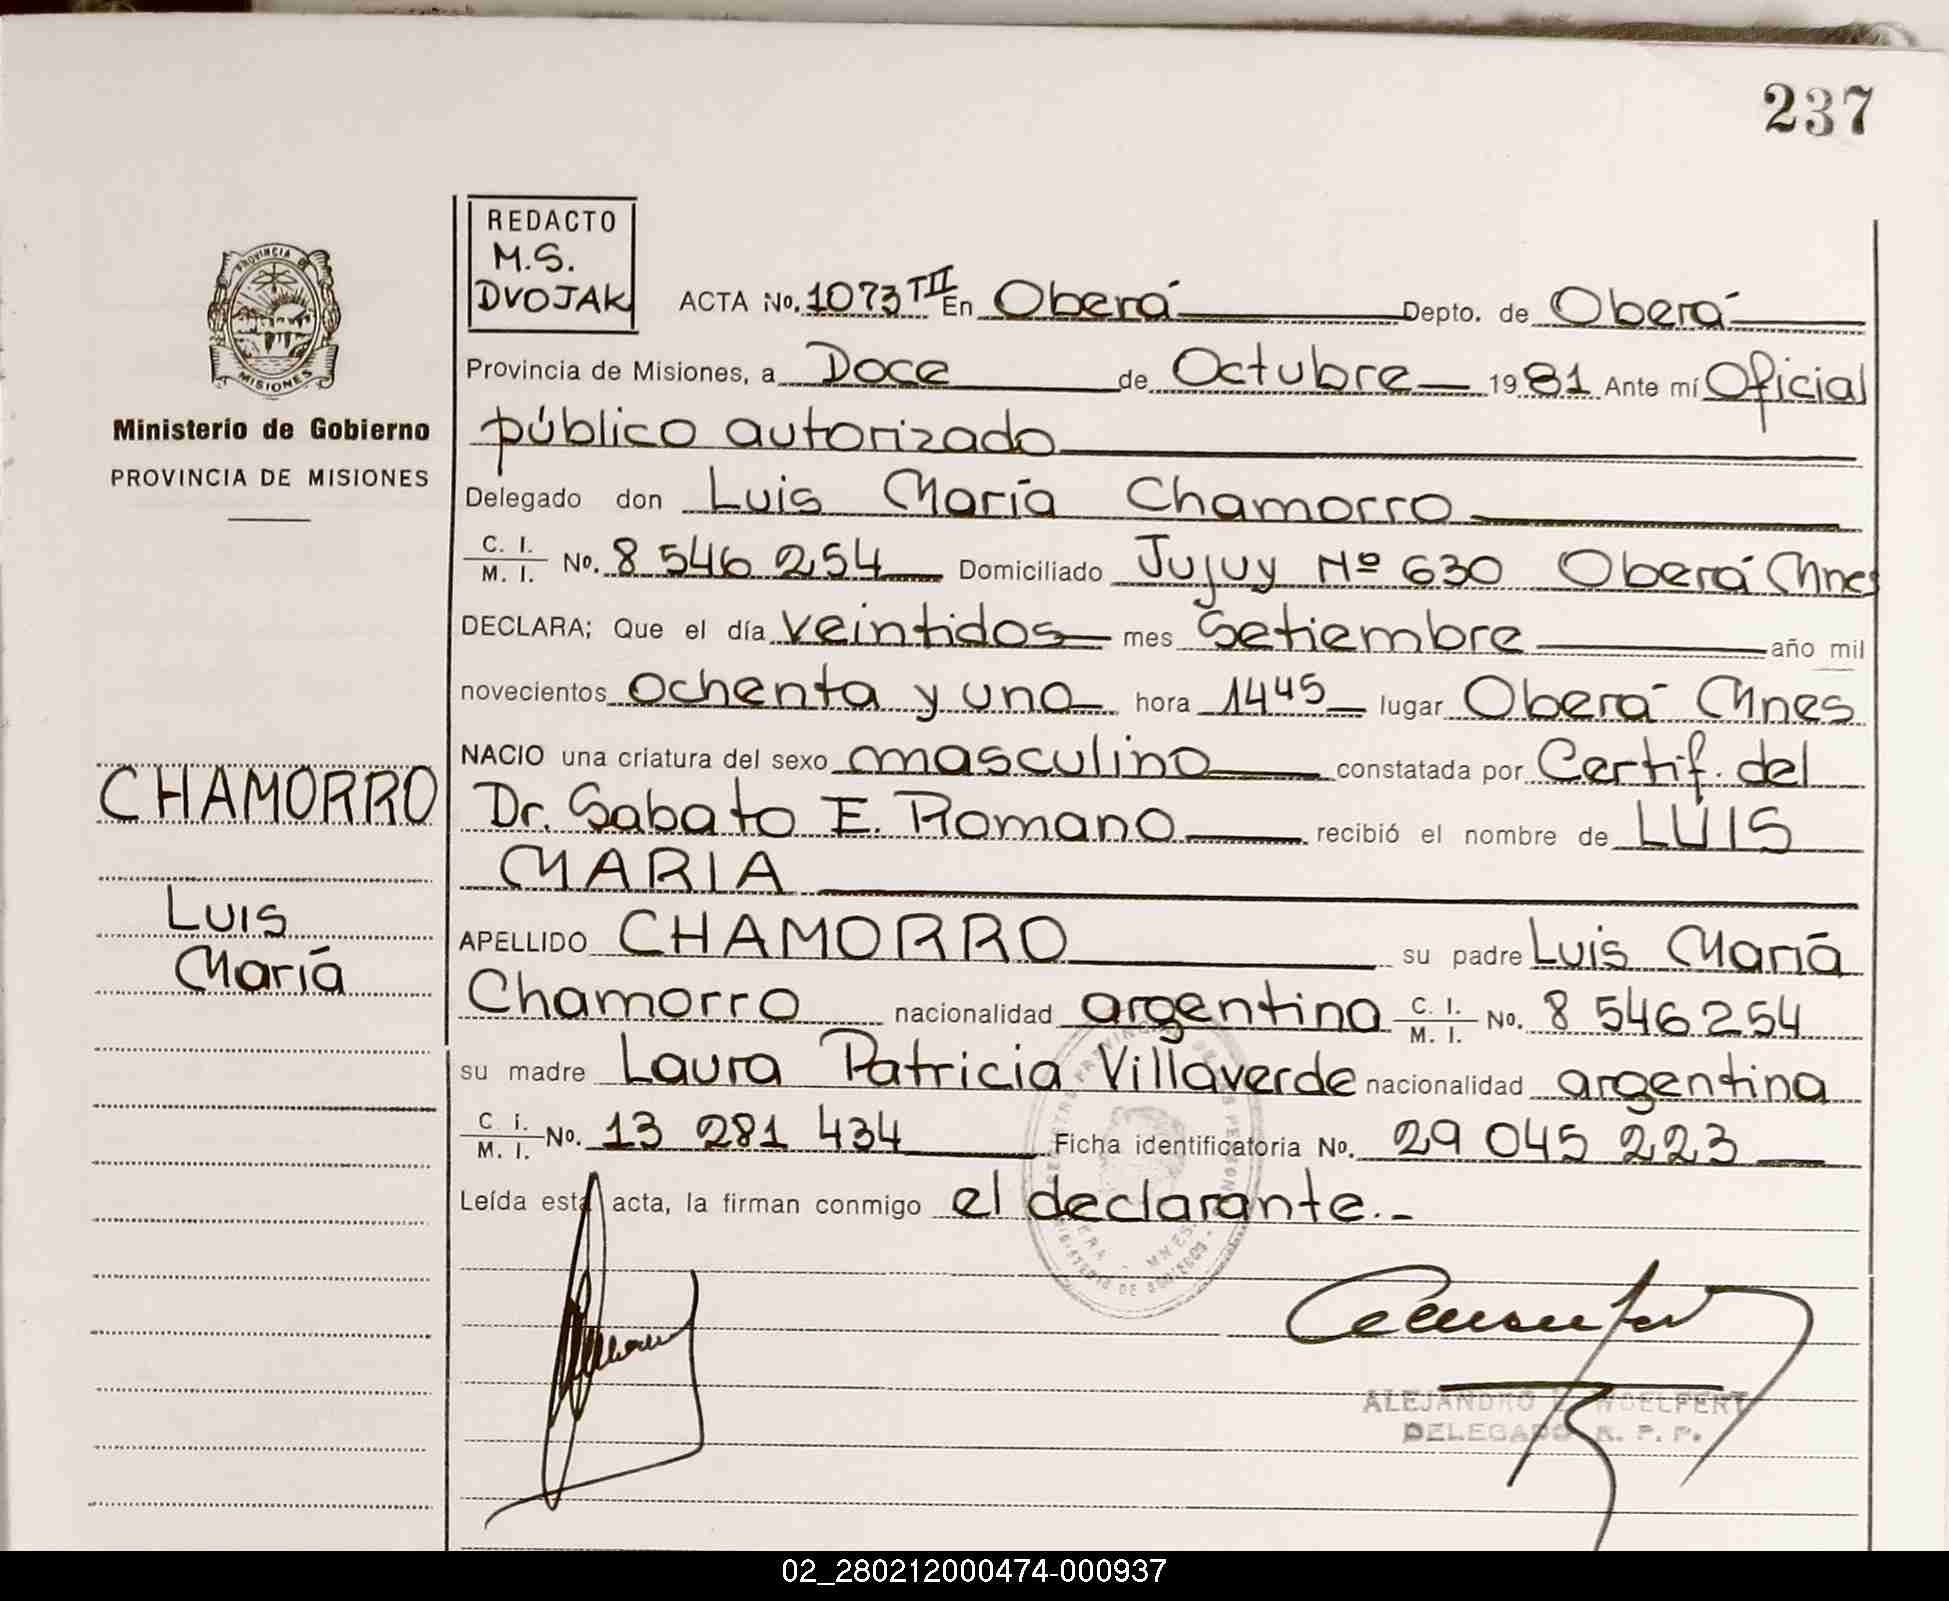 237
REDACTO
M.S.
DVOJAK
PROVINCIA DE
MISIONES
Ministerio de Gobierno
PROVINCIA DE MISIONES
ACTA No. 1073 TII En Oberá Depto. de Oberá
Provincia de Misiones, a Doce de Octubre 1981 Ante mí Oficial
público autorizado
Delegado don Luis María Chamorro
C. I.
M. I. No. 8 546 254 Domiciliado Jujuy Nº 630 Oberá Mnes
DECLARA; Que el día veintidos mes Setiembre año mil
novecientos ochenta y uno hora 14 45 lugar Oberá Mnes
NACIO una criatura del sexo masculino constatada por Certif. del
Dr. Sabato E. Romano recibió el nombre de LUIS
MARIA
APELLIDO CHAMORRO su padre Luis María
Chamorro nacionalidad argentino C. I. M. I. No. 8 546 254
su madre Laura Patricia Villaverde nacionalidad argentina
C. I.
M. I. No. 13 281 434 Ficha identificatoria No. 29 045 223
Leída esta acta, la firman conmigo el declarante.-
CHAMORRO
Luis
María
ALEJANDRO WOELFERT
DELEGADO R. P. P.
02_280212000474-000937